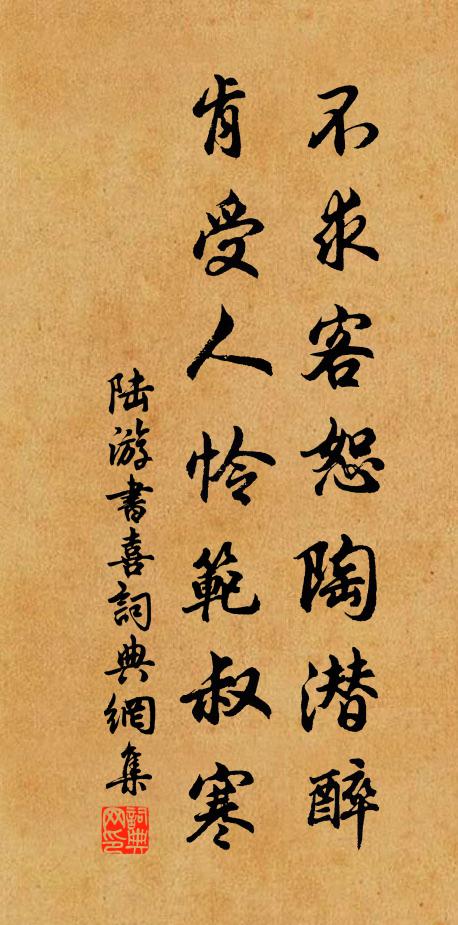 不求客恕陶潜醉
肯受人怜範叔寒
陆游書喜詞典網集
詞典网印